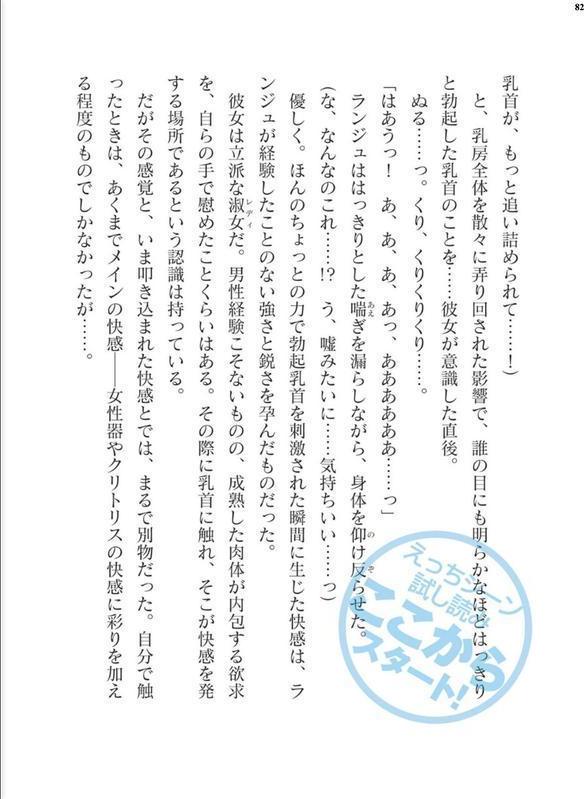 82
乳首が、もっと追い詰められて……！）
と、乳房全体を散々に弄り回された影響で、誰の目にも明らかなほどはっきり
と勃起した乳首のことを……彼女が意識した直後。
ぬる……っ。くり、くりくりくり……。
「はあうっ！　あ、あ、あ、あっ、ああああああ……っ」
ランジュははっきりとした喘ぎを漏らしながら、身体を仰け反らせた。
あえ
の
ぞ
（な、なんなのこれ……!?　う、嘘みたいに……気持ちいい……っ）
優しく。ほんのちょっとの力で勃起乳首を刺激された瞬間に生じた快感は、ラ
ンジュが経験したことのない強さと鋭さを孕んだものだった。
彼女は立派な淑女だ。男性経験こそないものの、成熟した肉体が内包する欲求
レディ
を、自らの手で慰めたことくらいはある。その際に乳首に触れ、そこが快感を発
する場所であるという認識は持っている。
だがその感覚と、いま叩き込まれた快感とでは、まるで別物だった。自分で触
ったときは、あくまでメインの快感――女性器やクリトリスの快感に彩りを加え
る程度のものでしかなかったが……。
えっちシーン
試し読み
ここから
スタート！